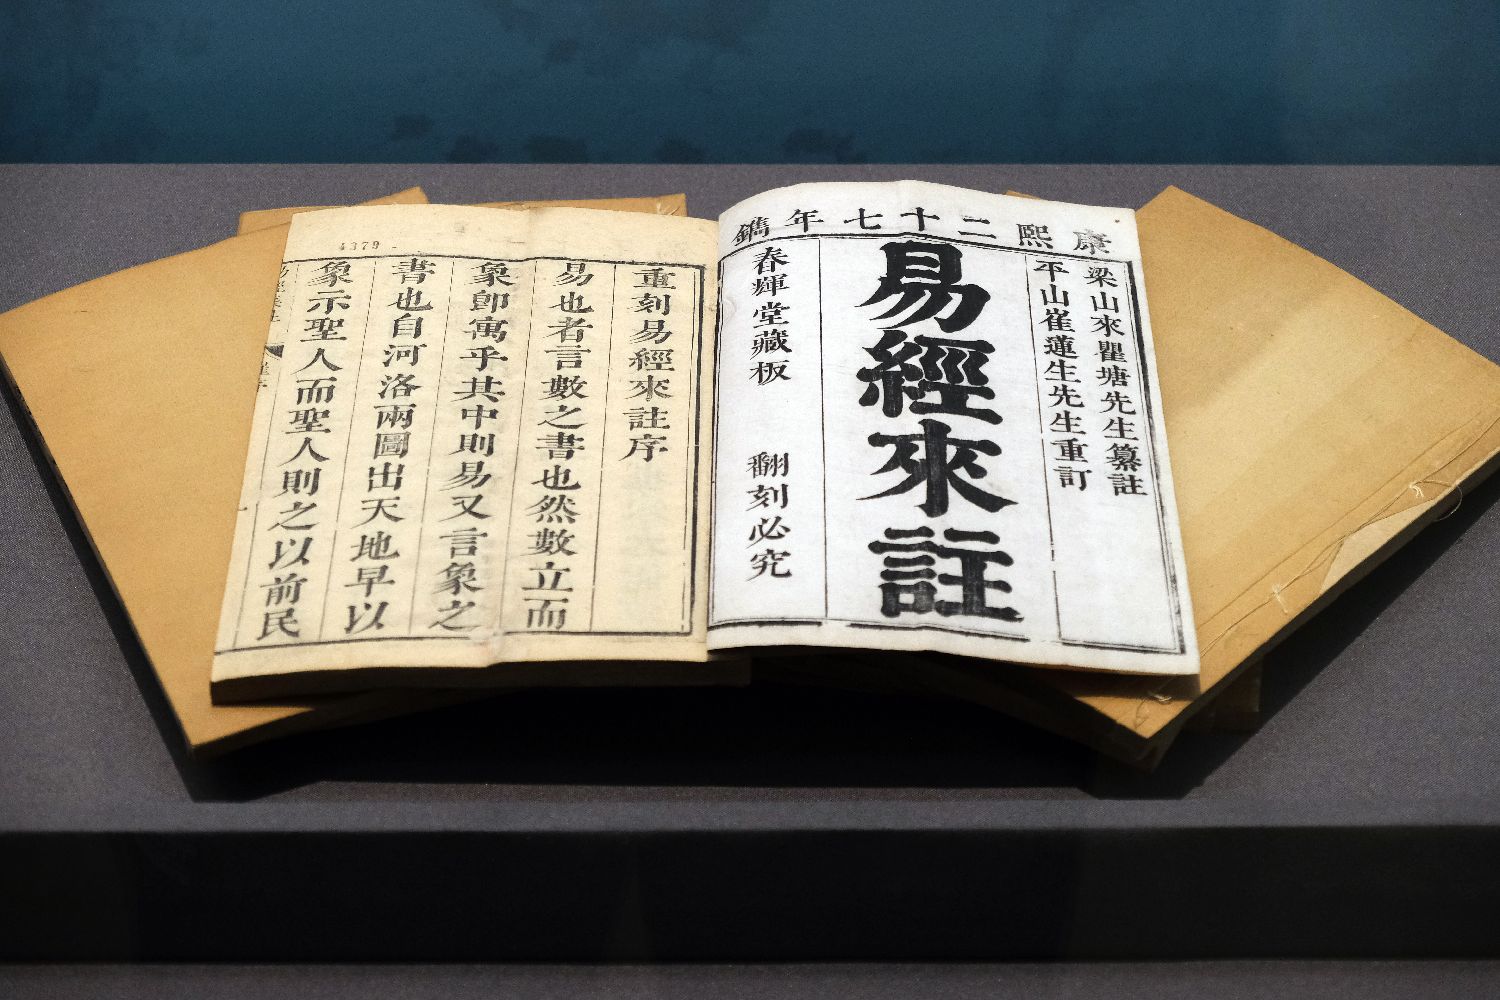 康熙二十七年鐫
梁山來瞿塘先生纂註
平山崔蓮生先生重訂
易經來註
春暉堂藏板 翻刻必究
4379
重刻易經來註序
易也者言數之書也然數立而
象卽寓乎其中則易又言象之
書也自河洛兩圖出天地早以
象示聖人而聖人則之以前民